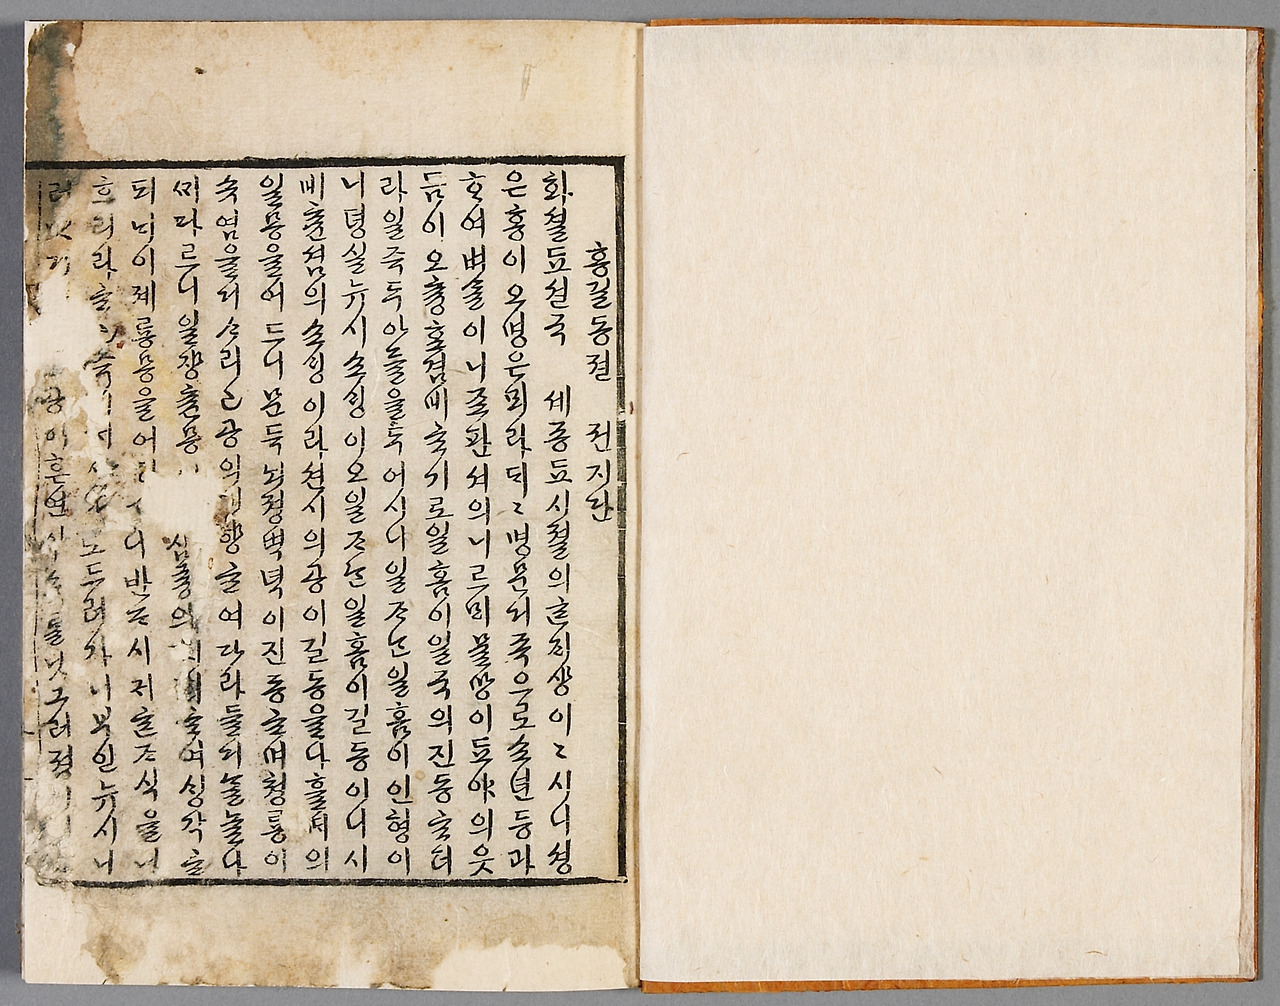 홍길동젼 권지단
화셜 됴션국 셰종됴 시졀의 ᄒᆞᆫ ᄌᆡ샹이 〻시니 셩
은 홍이오 명은 뫼라 ᄃᆡ〻 명문거족으로 소년등과
ᄒᆞ여 벼ᄉᆞᆯ이 니죠판셔의 니르ᄆᆡ 물망이 됴야의 읏
듬이오 츙효겸비ᄒᆞ기로 일홈이 일국의 진동ᄒᆞ더
라 일즉 두 아들을 두어시니 일ᄌᆞᄂᆞᆫ 일홈이 인형이
니 뎡실 뉴시 소ᄉᆡᆼ이오 일ᄌᆞᄂᆞᆫ 일홈이 길동이니 시
비 츈셤의 소ᄉᆡᆼ이라 션시의 공이 길동을 나흘 ᄯᆡ의
일몽을 어드니 문득 뇌졍벽녁이 진동ᄒᆞ며 쳥룡이
슈염을 거ᄉᆞ리고 공의 향ᄒᆞ여 다라들거ᄂᆞᆯ 놀나
ᄭᆡ다르니 일쟝츈몽 심즁의 ᄒᆞ여 ᄉᆡᆼ각ᄒᆞ
되 ᄂᆡ 이졔 룡몽을 어 니 반ᄃᆞ시 귀ᄒᆞᆫ ᄌᆞ식을 나
흐리라 ᄒᆞ 드러가니 부인 뉴시 니
러 공이 흔연 닛그러 졍